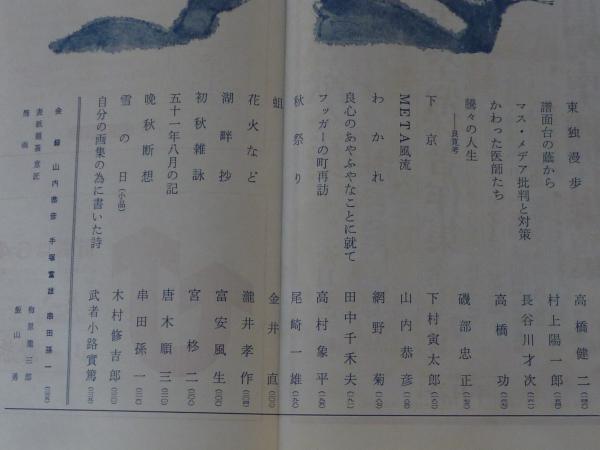 東独漫歩 高橋健二
譜面台の蔭から 村上陽一郎
マス・メデア批判と対策 長谷川才次
かわった医師たち 高橋功
騰々の人生 ――良寛考 磯部忠正
下京 下村寅太郎
META風流 山内恭彦
わかれ 網野菊
良心のあやふやなことに就て 田中千禾夫
フッガーの町再訪 高村象平
秋祭り 尾崎一雄
蛆 金井直
花火など 瀧井孝作
湖畔抄 富安風生
初秋雑詠 宮柊二
五十一年八月の記 唐木順三
晩秋断想 串田孫一
雪の日(小品) 木村修吉郎
自分の画集の為に書いた詩 武者小路實篤
会録 山内恭彦 手塚富雄 串田孫一
表紙題簽意匠
飯山勇